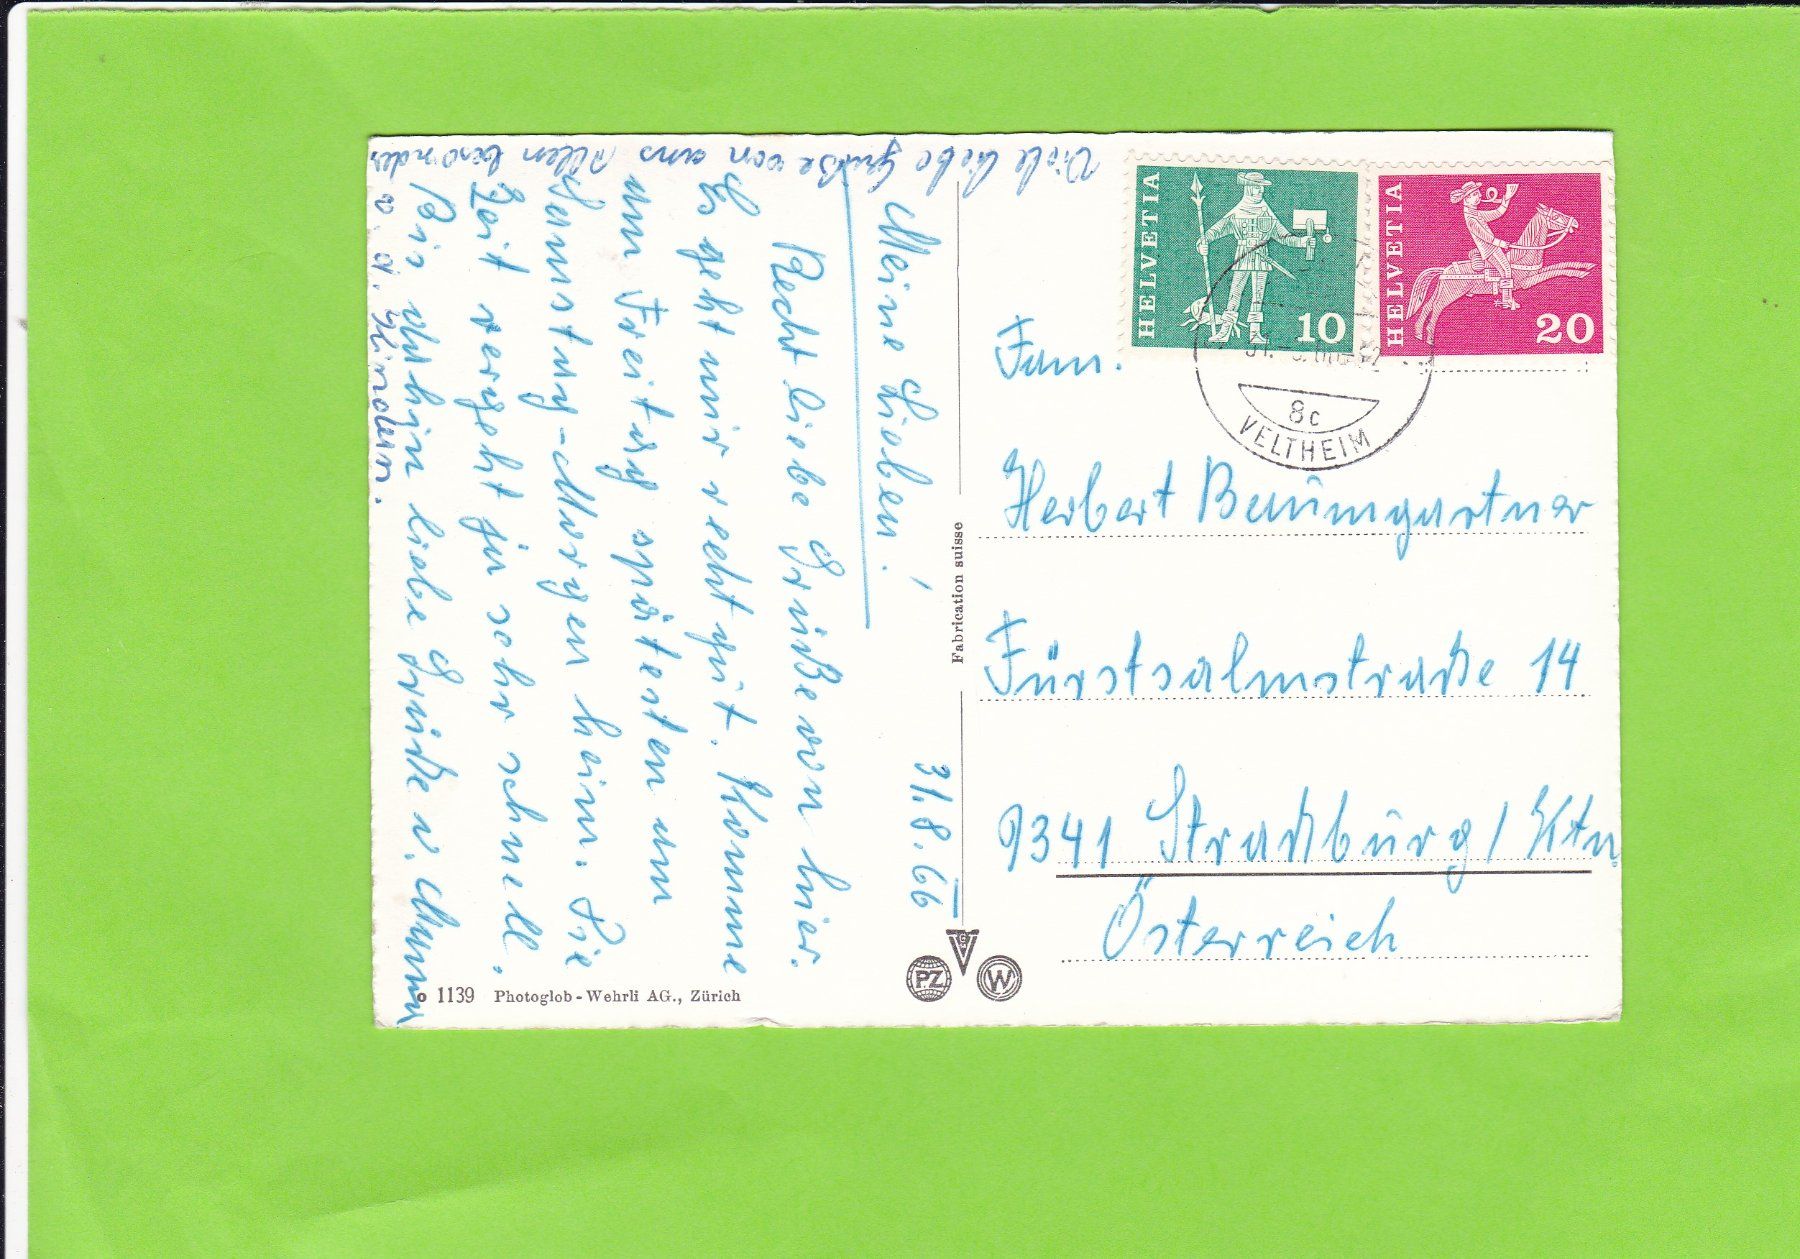 Meine Lieben!
31.8.66
Recht liebe Grüße von hier.
Es geht mir recht gut. Komme
nun Freitag spätesten um
Samstag-Morgen heim. Die
Zeit vergeht ja sehr schnell.
Bis dahin liebe Grüße v. Mumm
Viele liebe Grüße von uns Allen besonders
v. d. Kindern.
HELVETIA
10
HELVETIA
20
8c
VELTHEIM
Fam.
Herbert Baumgartner
Fürstsalmstraße 14
9341 Straßburg / Ktn
Österreich
Fabrication suisse
PZ
G
V
W
1139 Photoglob-Wehrli AG., Zürich